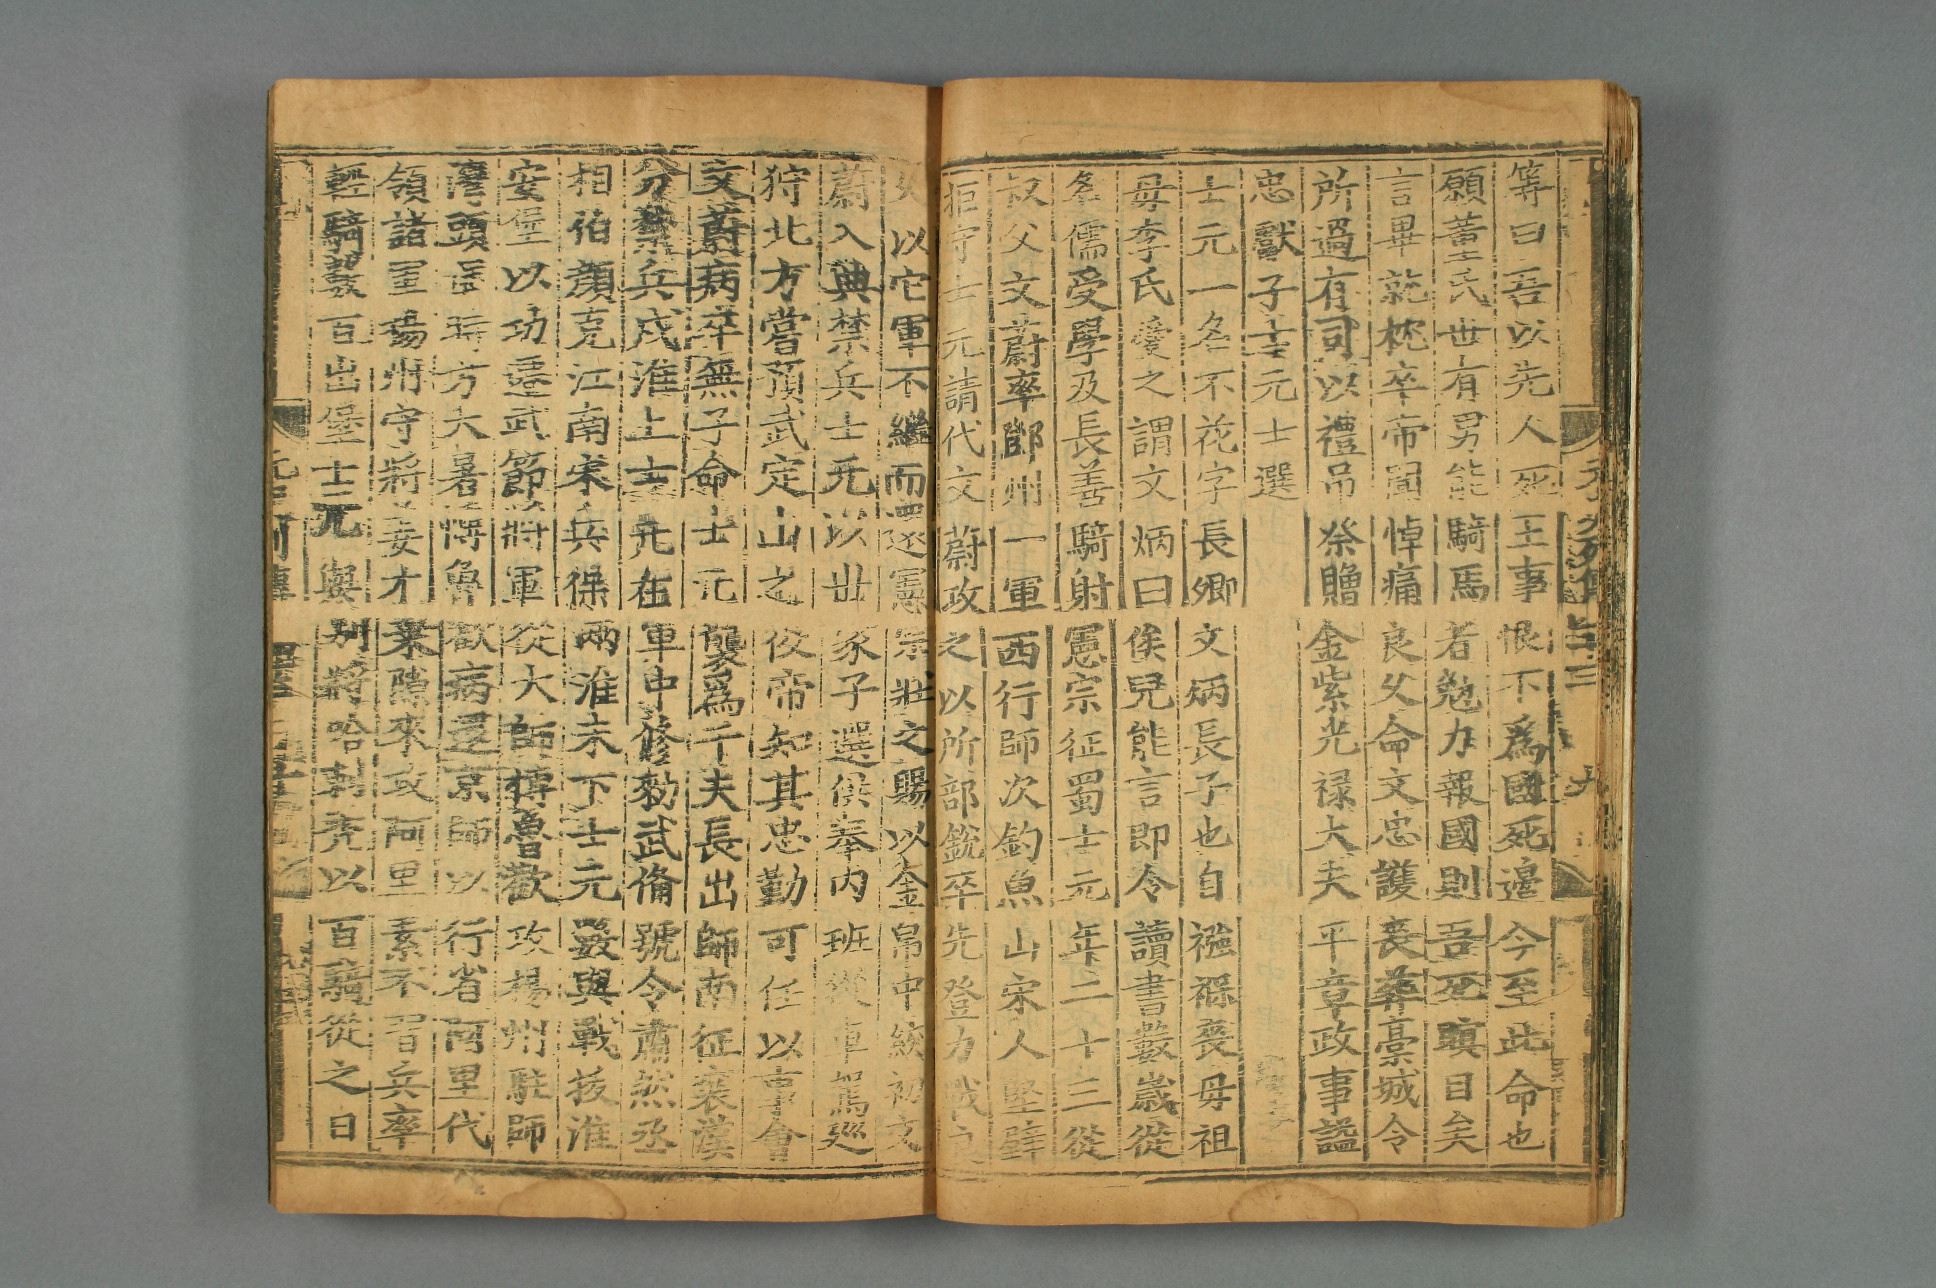 等曰吾以先人死王事恨不爲國死邊今至此命也
願董氏世有男能騎馬者勉力報國則吾死瞑目矣
言畢就枕卒帝聞悼痛良乆命文忠護喪葬藁城令
所過有司以禮吊祭贈金紫光禄大夫平章政事謚
忠獻子士元士選
士元一名不花字長卿文炳長子也自襁褓喪母祖
母李氏愛之謂文炳曰俟兒能言即令讀書數歳從
名儒受學及長善騎射憲宗征蜀士元年二十三從
叔父文蔚率鄧州一軍西行師次釣魚山宋人堅壁
拒守士元請代文蔚攻之以所部銳卒先登力戰良
乆以它軍不繼而還憲宗壯之賜以金帛中統初文
蔚入典禁兵士元以世家子選供奉内班從車駕廵
狩北方嘗預武定山之役帝知其忠勤可任以事會
文蔚病卒無子命士元襲爲千夫長出師南征襄漢
分禁兵戍淮上士元在軍中修勑武俻號令肅然丞
相伯顔克江南宋兵保兩淮未下士元數與戰拔淮
安堡以功遷武節將軍從大師博魯歡攻楊州駐師
灣頭堡時方大暑博魯歡病還京師以行省阿里代
領諸軍楊州守將姜才乗隙來攻阿里素不習兵率
輕騎數百出堡士元與别將哈剌禿以百騎從之日
元史列傳